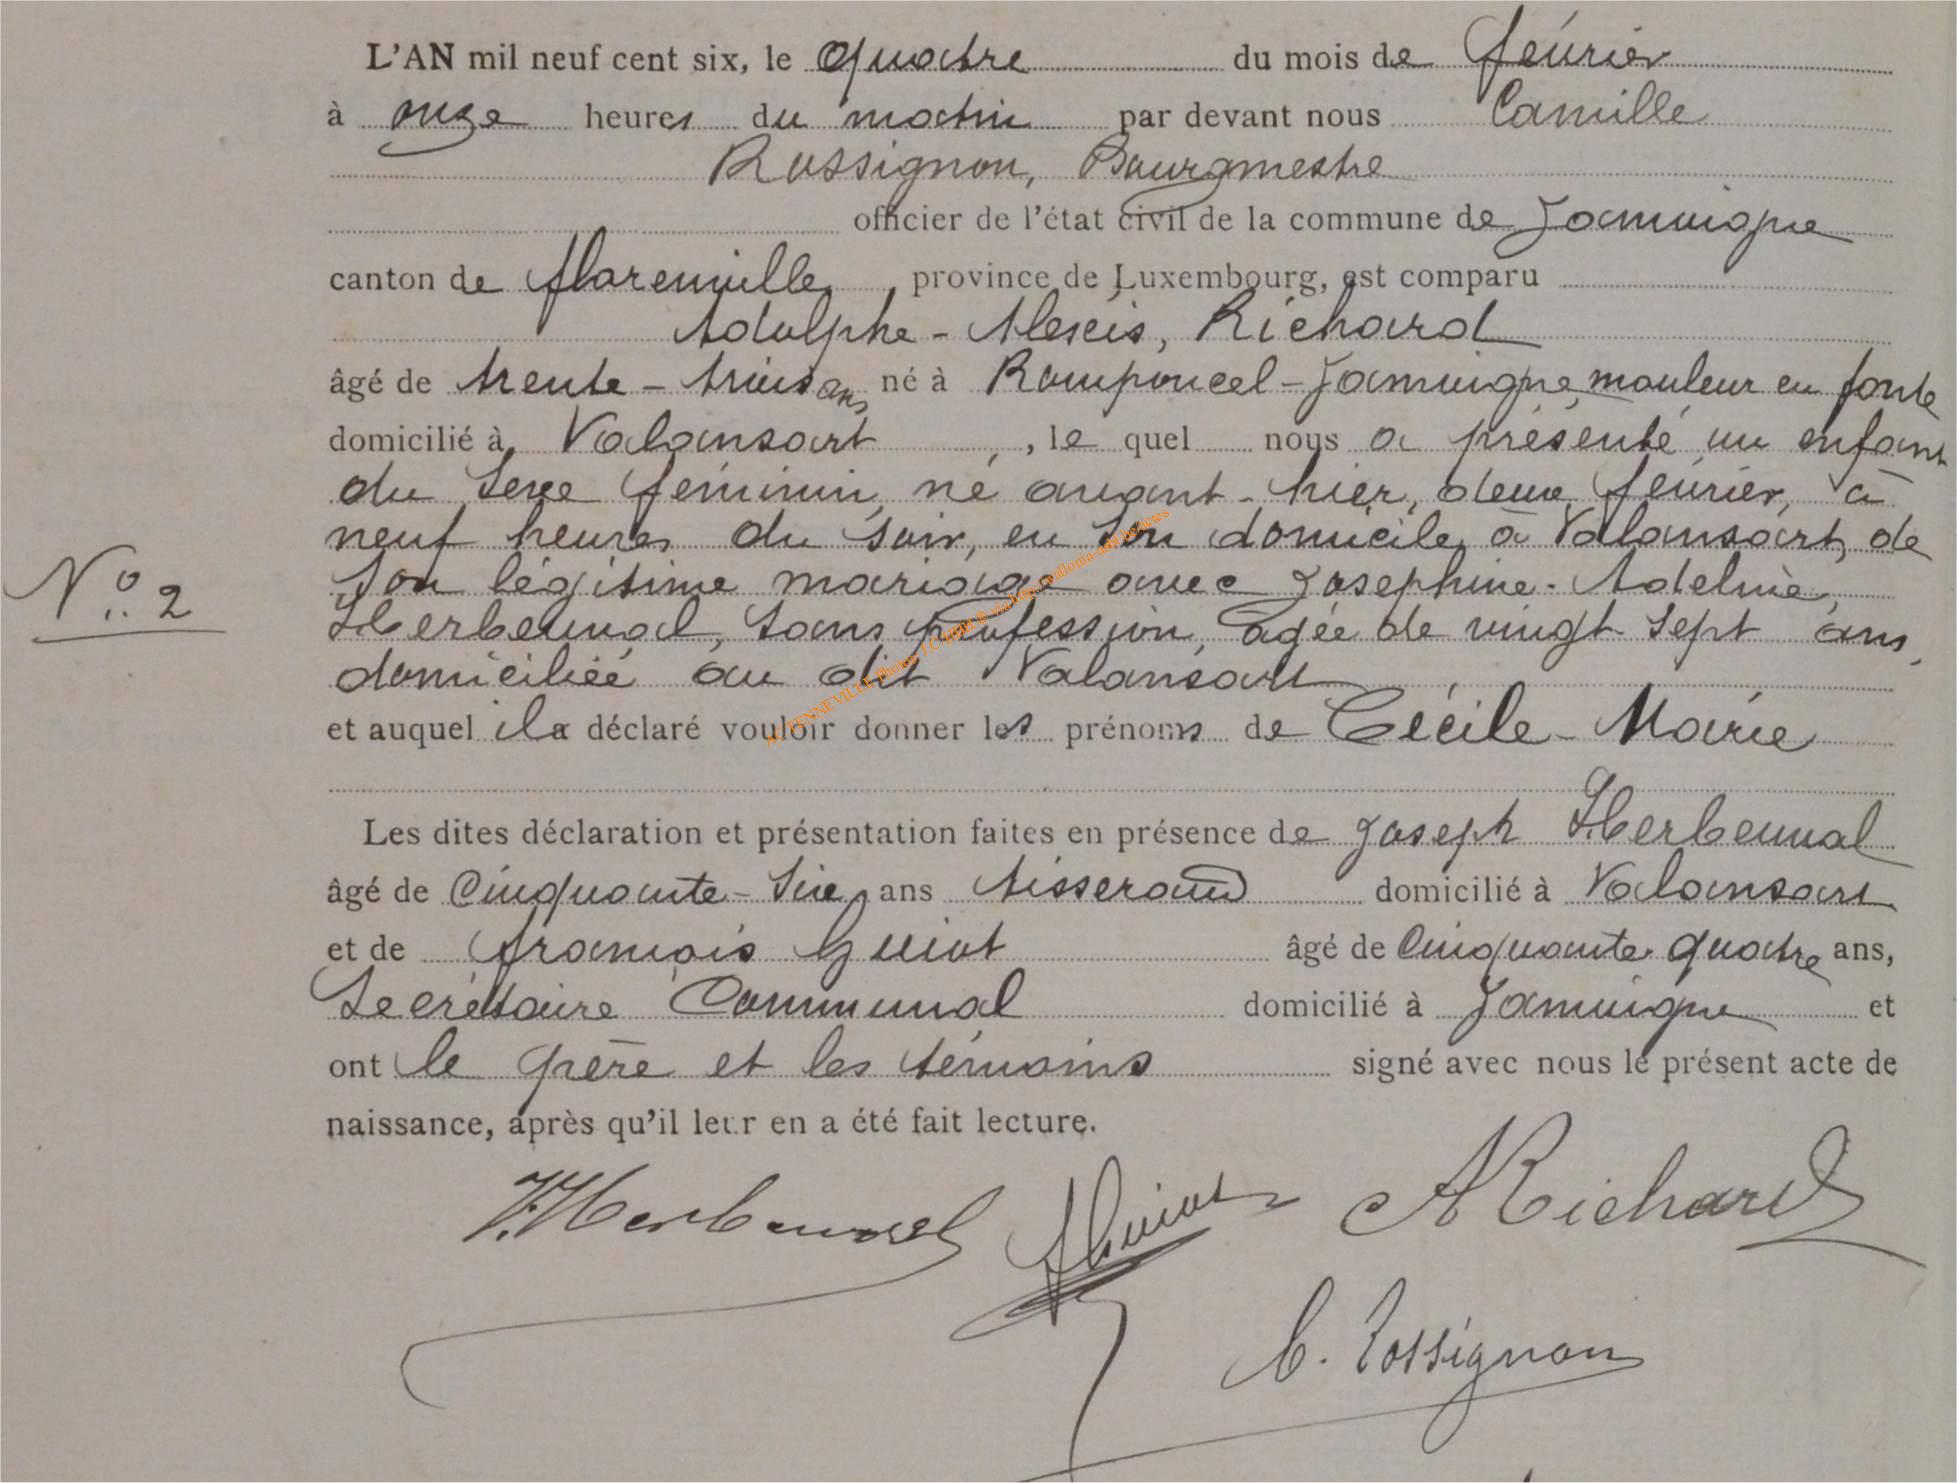 L'AN mil neuf cent six, le Quatre du mois de février
à onze heures du matin par devant nous Camille
Rossignon, Bourgmestre
officier de l'état civil de la commune de Jamoigne
canton de Florenville, province de Luxembourg, est comparu
Adolphe-Alexis, Richard
âgé de trente-trois ans, né à Romponcel-Jamoigne, mouleur en fonte
domicilié à Valansart, le quel nous a présenté un enfant
du sexe féminin, né avant-hier, deux février, à
neuf heures du soir, en son domicile à Valansart, de
N° 2
son légitime mariage avec Joséphine-Adeline,
Herbeuval, sans profession, âgée de vingt-sept ans,
domiciliée au dit Valansart
et auquel il a déclaré vouloir donner les prénoms de Cécile-Marie
Les dites déclaration et présentation faites en présence de Joseph Herbeuval
âgé de Cinquante-six ans Tisserand domicilié à Valansart
et de François Guiot âgé de Cinquante quatre ans,
Secrétaire Communal domicilié à Jamoigne et
ont le père et les témoins signé avec nous le présent acte de
naissance, après qu'il leur en a été fait lecture.
J. Herbeuval F Guiot A Richard
C. Rossignon